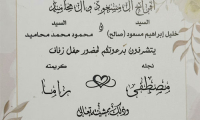 أفراح آل مسعود وآل محاميد
السيد السيد
خليل إبراهيم مسعود (صالح) و محمود محمد محاميد
يتشرفون بدعوتكم لحضور حفل زفاف
نجله كريمته
مصطفى راما
وذلك بمشيئة الله تعالى